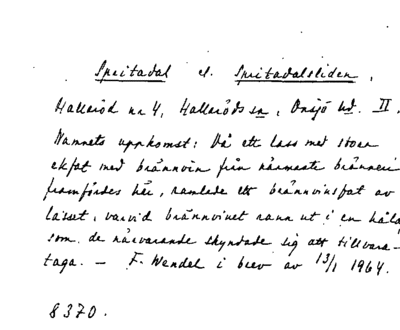 Spritadal el. Spritadalsliden,
Halleröd nr 4, Halleröds sn, Onsjö hd. II.
Namnets uppkomst: Då ett lass med stora
ekfat med brännvin från närmaste bränneri
framfördes här, ramlade ett brännvinsfat av
lasset, varvid brännvinet rann ut i en håla,
som de närvarande skyndade sig att tillvara-
taga. — F. Wendel i brev av 13/1 1964.
8370.